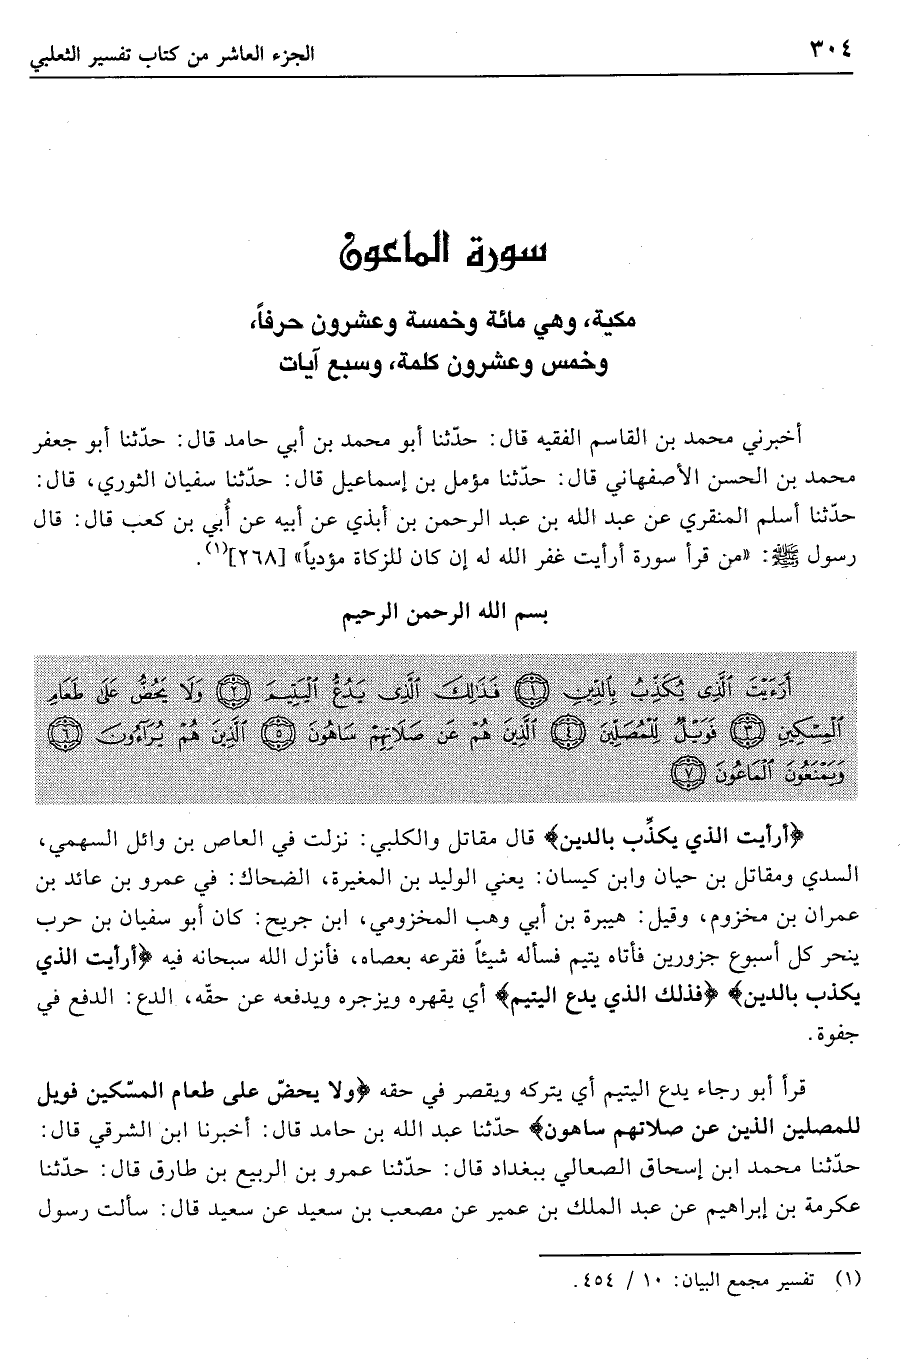 ٣٠٤
الجزء العاشر من كتاب تفسير الثعلبي
سورة الماعون
مكية، وهي مائة وخمسة وعشرون حرفاً،
وخمس وعشرون كلمة، وسبع آيات
أخبرني محمد بن القاسم الفقيه قال: حدّثنا أبو محمد بن أبي حامد قال: حدّثنا أبو جعفر
محمد بن الحسن الأصفهاني قال: حدّثنا مؤمل بن إسماعيل قال: حدّثنا سفيان الثوري، قال:
حدّثنا أسلم المنقري عن عبد الله بن عبد الرحمن بن أبذي عن أبيه عن أُبي بن كعب قال: قال
رسول ﷺ: «من قرأ سورة أرأيت غفر الله له إن كان للزكاة مؤدياً» [٢٦٨](١).
بسم الله الرحمن الرحيم
أَرَءَيْتَ ٱلَّذِى يُكَذِّبُ بِٱلدِّينِ ١ فَذَٰلِكَ ٱلَّذِى يَدُعُّ ٱلْيَتِيمَ ٢ وَلَا يَحُضُّ عَلَىٰ طَعَامِ
ٱلْمِسْكِينِ ٣ فَوَيْلٌ لِّلْمُصَلِّينَ ٤ ٱلَّذِينَ هُمْ عَن صَلَاتِهِمْ سَاهُونَ ٥ ٱلَّذِينَ هُمْ يُرَآءُونَ ٦
وَيَمْنَعُونَ ٱلْمَاعُونَ ٧
﴿أرأيت الذي يكذِّب بالدين﴾ قال مقاتل والكلبي: نزلت في العاص بن وائل السهمي،
السدي ومقاتل بن حيان وابن كيسان: يعني الوليد بن المغيرة، الضحاك: في عمرو بن عائد بن
عمران بن مخزوم، وقيل: هبيرة بن أبي وهب المخزومي، ابن جريح: كان أبو سفيان بن حرب
ينحر كل أسبوع جزورين فأتاه يتيم فسأله شيئاً فقرعه بعصاه، فأنزل الله سبحانه فيه ﴿أرأيت الذي
يكذب بالدين﴾ ﴿فذلك الذي يدع اليتيم﴾ أي يقهره ويزجره ويدفعه عن حقّه، الدع: الدفع في
جفوة.
قرأ أبو رجاء يدع اليتيم أي يتركه ويقصر في حقه ﴿ولا يحضّ على طعام المسّكين فويل
للمصلين الذين عن صلاتهم ساهون﴾ حدّثنا عبد الله بن حامد قال: أخبرنا ابن الشرقي قال:
حدّثنا محمد ابن إسحاق الصعالي ببغداد قال: حدّثنا عمرو بن الربيع بن طارق قال: حدّثنا
عكرمة بن إبراهيم عن عبد الملك بن عمير عن مصعب بن سعيد عن سعيد قال: سألت رسول
(١) تفسير مجمع البيان: ١٠ / ٤٥٤.